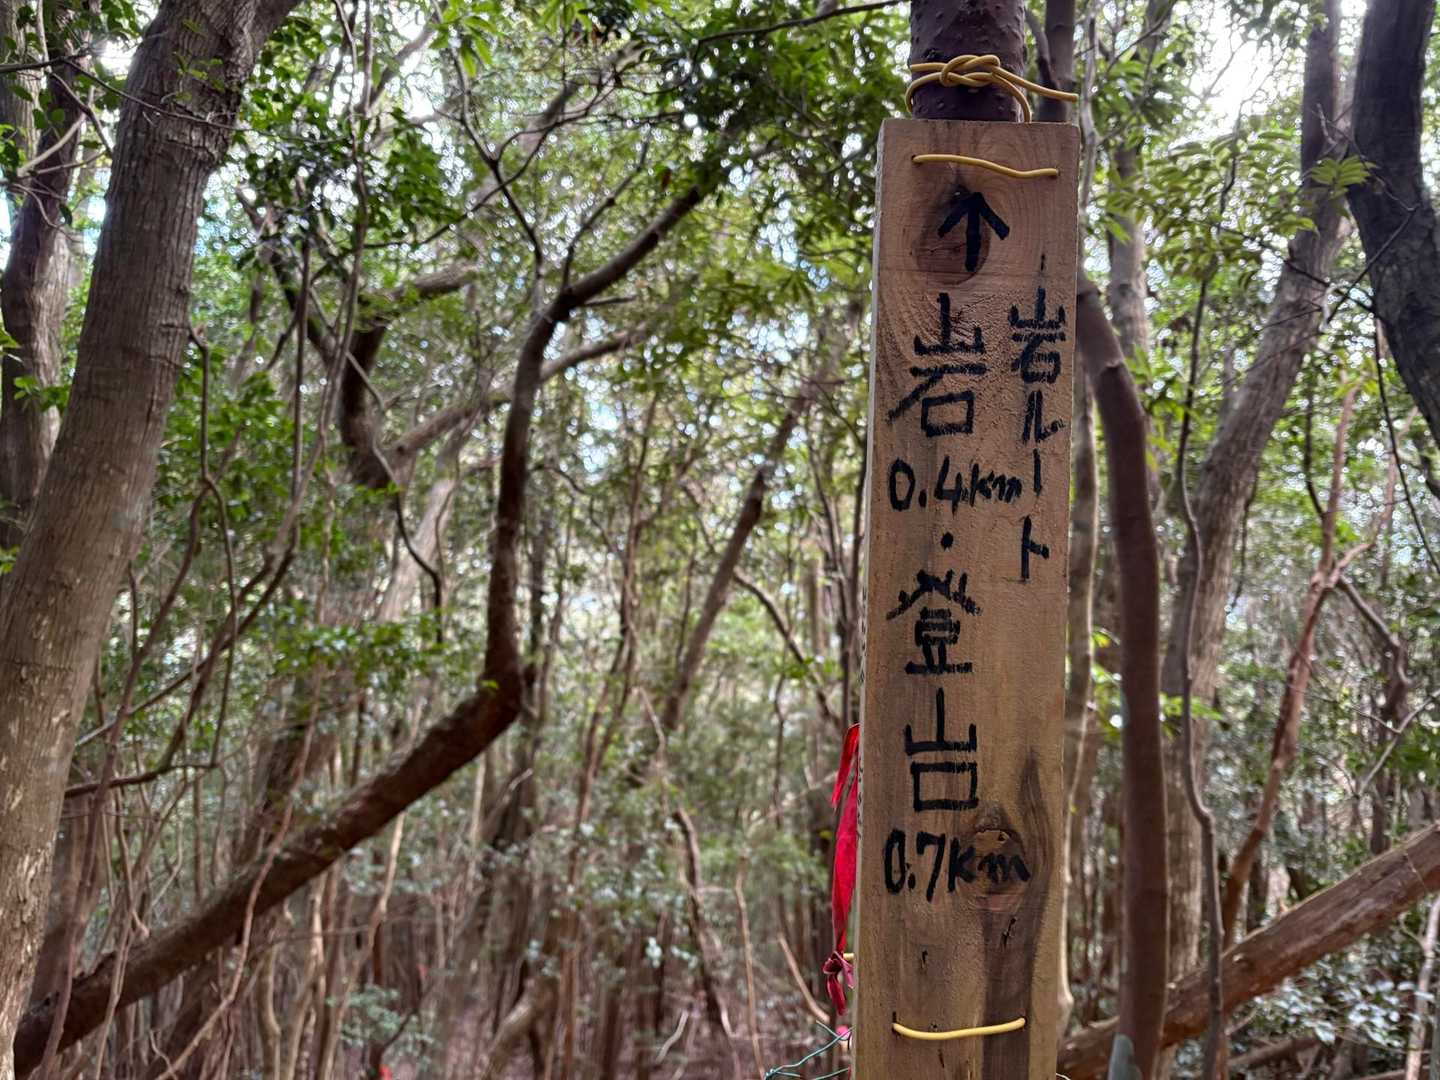 ↑
岩ルート
岩
0.4km
・登山口
0.7km